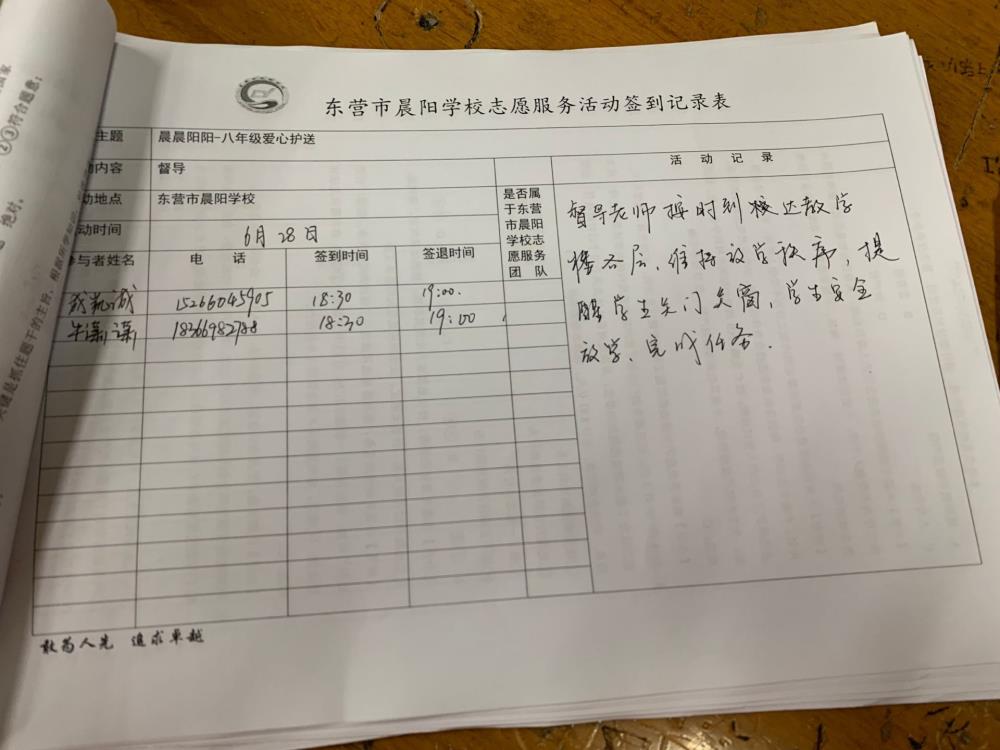 东营市晨阳学校志愿服务活动签到记录表
主题 晨晨阳阳-八年级爱心护送
动内容 督导
动地点 东营市晨阳学校
动时间 6月28日
参与者姓名 电 话 签到时间 签退时间
是否属
于东营
市晨阳
学校志
愿服务
团 队
15266045905 18:30 19:00.
牛潇潇 18366982788 18:30 19:00
活 动 记 录
督导老师按时到达教学
楼各层、维持放学秩序,提
醒学生关门关窗,学生安全
放学、完成任务.
敢为人先 追求卓越
②③符合题意;
绝对。
关键是抓住题干的主旨,